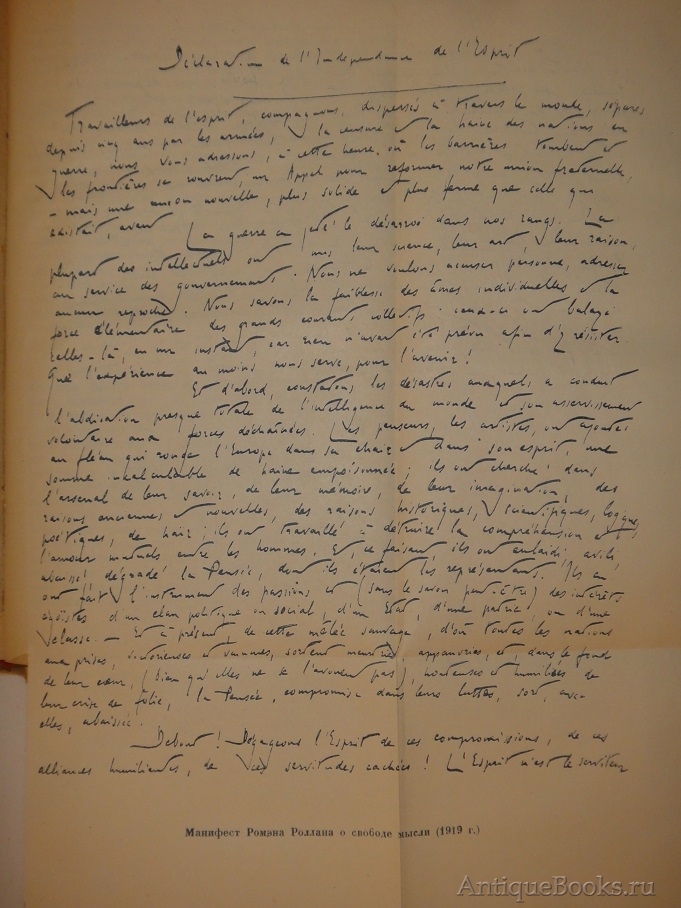 Déclaration de l'Indépendance de l'Esprit
Travailleurs de l'esprit, compagnons, dispersés à travers le monde, séparés
depuis cinq ans par les armées, la censure et la haine des nations en
guerre, nous vous adressons, à cette heure où les barrières tombent et
les frontières se rouvrent, un Appel pour reformer notre union fraternelle,
- mais une union nouvelle, plus solide et plus ferme que celle qui
existait, avant.
La guerre a jeté le désarroi dans nos rangs. La
plupart des intellectuels ont mis leur science, leur art, leur raison,
au service des gouvernements. Nous ne voulons accuser personne, adresser
aucun reproche. Nous savons la faiblesse des âmes individuelles et la
force élémentaire des grands courants collectifs: ceux-ci ont balayé
celles-là, en un instant, car rien n'avait été prévu afin d'y résister.
Que l'expérience au moins nous serve, pour l'avenir!
Et d'abord, constatons les désastres auxquels a conduit
l'abdication presque totale de l'intelligence du monde et son asservissement
volontaire aux forces déchaînées. Les penseurs, les artistes, ont ajouté
au fléau qui ronge l'Europe dans sa chair et dans son esprit, une
somme incalculable de haine empoisonnée; ils ont cherché dans
l'arsenal de leur savoir, de leur mémoire, de leur imagination, des
raisons anciennes et nouvelles, des raisons historiques, scientifiques, logiques,
poétiques, de haïr; ils ont travaillé à détruire la compréhension et
l'amour mutuels entre les hommes. Et, ce faisant, ils ont enlaidi, avili,
abaissé, dégradé la Pensée, dont ils étaient les représentants. Ils en
ont fait l'instrument des passions et (sans le savoir peut-être) des intérêts
égoïstes d'un clan politique ou social, d'un État, d'une patrie, ou d'une
classe. — Et à présent, de cette mêlée sauvage, d'où toutes les nations
aux prises, victorieuses et vaincues, sortent meurtries, appauvries, et, dans le fond
de leur cœur, (bien qu'elles ne se l'avouent pas), honteuses et humiliées de
leur crise de folie, la Pensée, compromise dans leurs luttes, sort, avec
elles, abaissée.
Debout! Dégageons l'Esprit de ces compromissions, de ces
alliances humiliantes, de ces servitudes cachées! L'Esprit n'est le serviteur
Манифест Ромэна Роллана о свободе мысли (1919 г.)
AntiqueBooks.ru